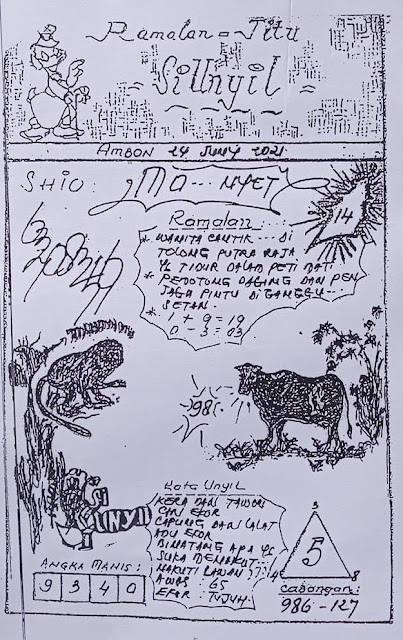 Ramalan = Jitu
SiUnyil
AMBON 24 JUNY 2021
SHIO: MO... NYET
14
Ramalan
* WANITA CANTIK ... DI
TOLONG PUTRA RAJA
YG TIDUR DALAM PETI MATI
* PEMOTONG DAGING DAN PEN
JAGA PINTU DI GANGGU
SETAN.
* 1 + 9 = 19
0 - 3 = 03
985
Kata Unyil
KERA DARI
EKOR
CAPUNG DAN LALAT
ADU EKOR
BINATANG APA YG
SUKA
NAKUTI LAWAN ??
AWAS : 65
EKOR : TUJUH
SI UNYIL
ANGKA MANIS:
9 3 4 0
3
5
4 8
Cabangan:
986 - 127